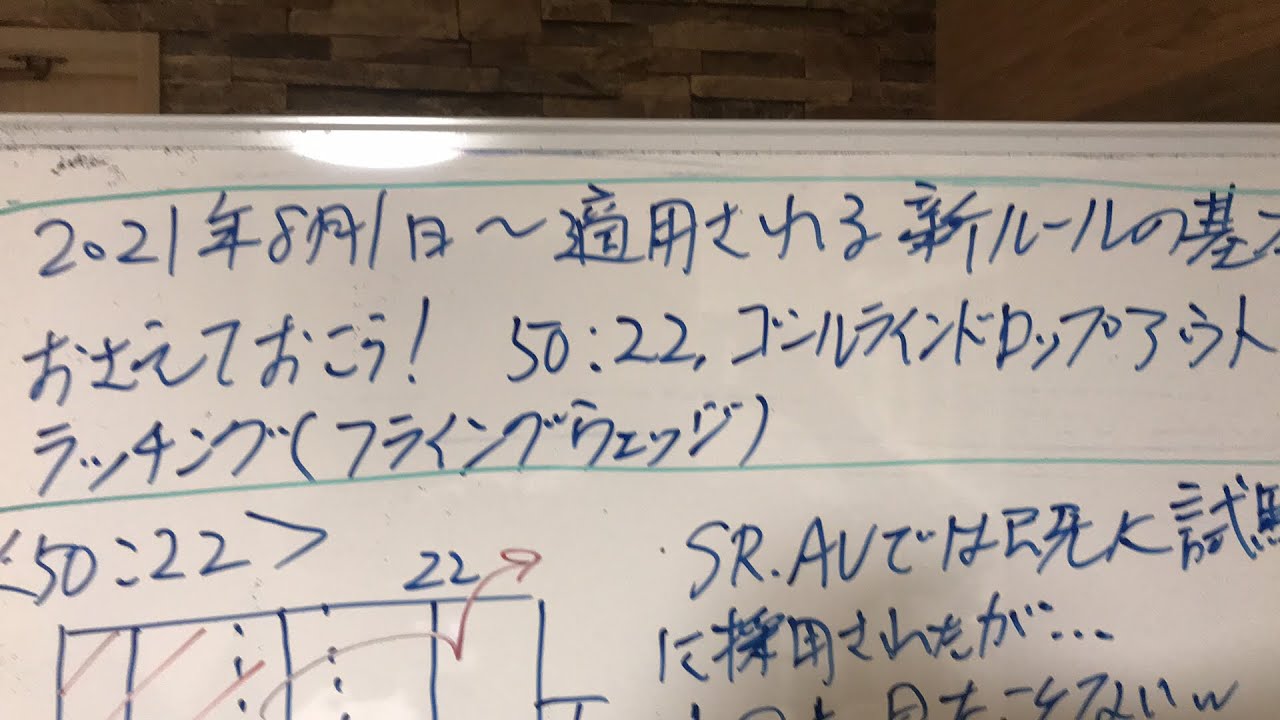 2021年8月1日～適用される新ルールの基本
おさえておこう! 50:22, ゴールラインドロップアウト
ラッチング(フライングウェッジ)
<50:22>
22
SR.AUでは既に試験
に採用されたが…
見たことないw